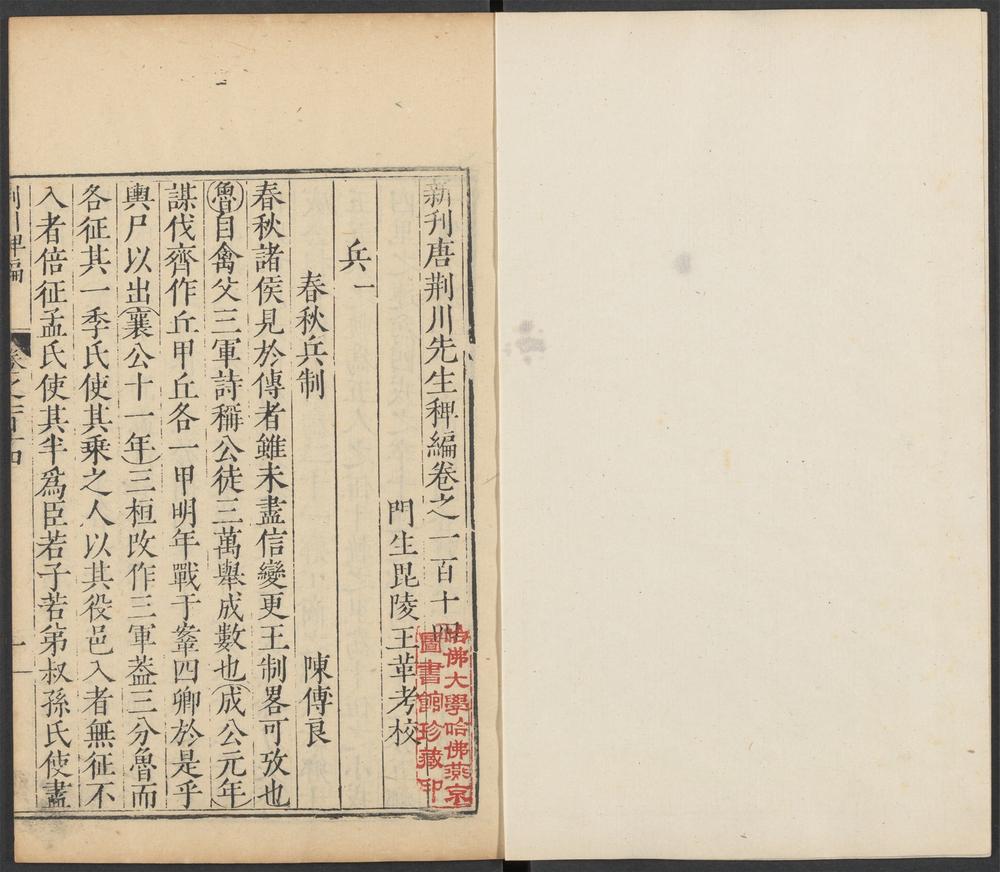 新刋唐荆川先生稗編卷之一百十四
門生毘陵王革考校
兵一
春秋兵制
陳傅良
春秋諸侯見於傳者雖未盡信變更王制畧可攷也
魯自禽父三軍詩稱公徒三萬舉成數也成公元年
謀伐齊作丘甲丘各一甲明年戰于鞌四卿於是乎
輿尸以出襄公十一年三桓改作三軍葢三分魯而
各征其一季氏使其乗之人以其役邑入者無征不
入者倍征孟氏使其半爲臣若子若弟叔孫氏使盡
荆川稗編
卷之百十四
一
哈佛大學哈佛燕京
圖書館珍藏印